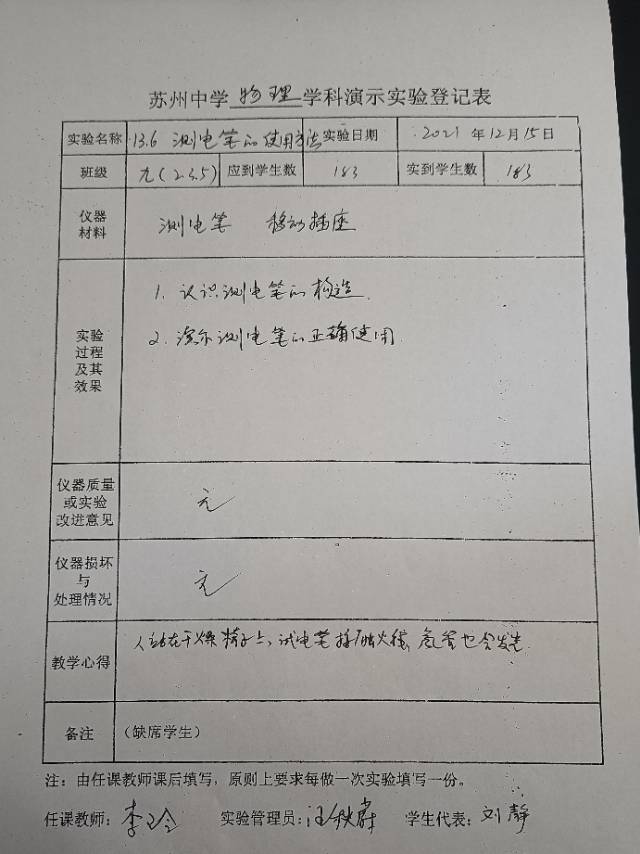 苏州中学 物理 学科演示实验登记表
实验名称 13.6 测电笔的使用方法 实验日期 2021 年 12 月 15 日
班级 九(2.3.5) 应到学生数 183 实到学生数 183
仪器
材料
测电笔 移动插座
1. 认识测电笔的构造.
2. 演示测电笔的正确使用.
实验
过程
及其
效果
仪器质量
或实验
改进意见
无
仪器损坏
与
处理情况
无
教学心得 人站在干燥椅子上,试电笔接触火线,氖管也会发光.
备注 (缺席学生)
注:由任课教师课后填写,原则上要求每做一次实验填写一份。
任课教师: 李玲 实验管理员: 汪 学生代表: 刘静